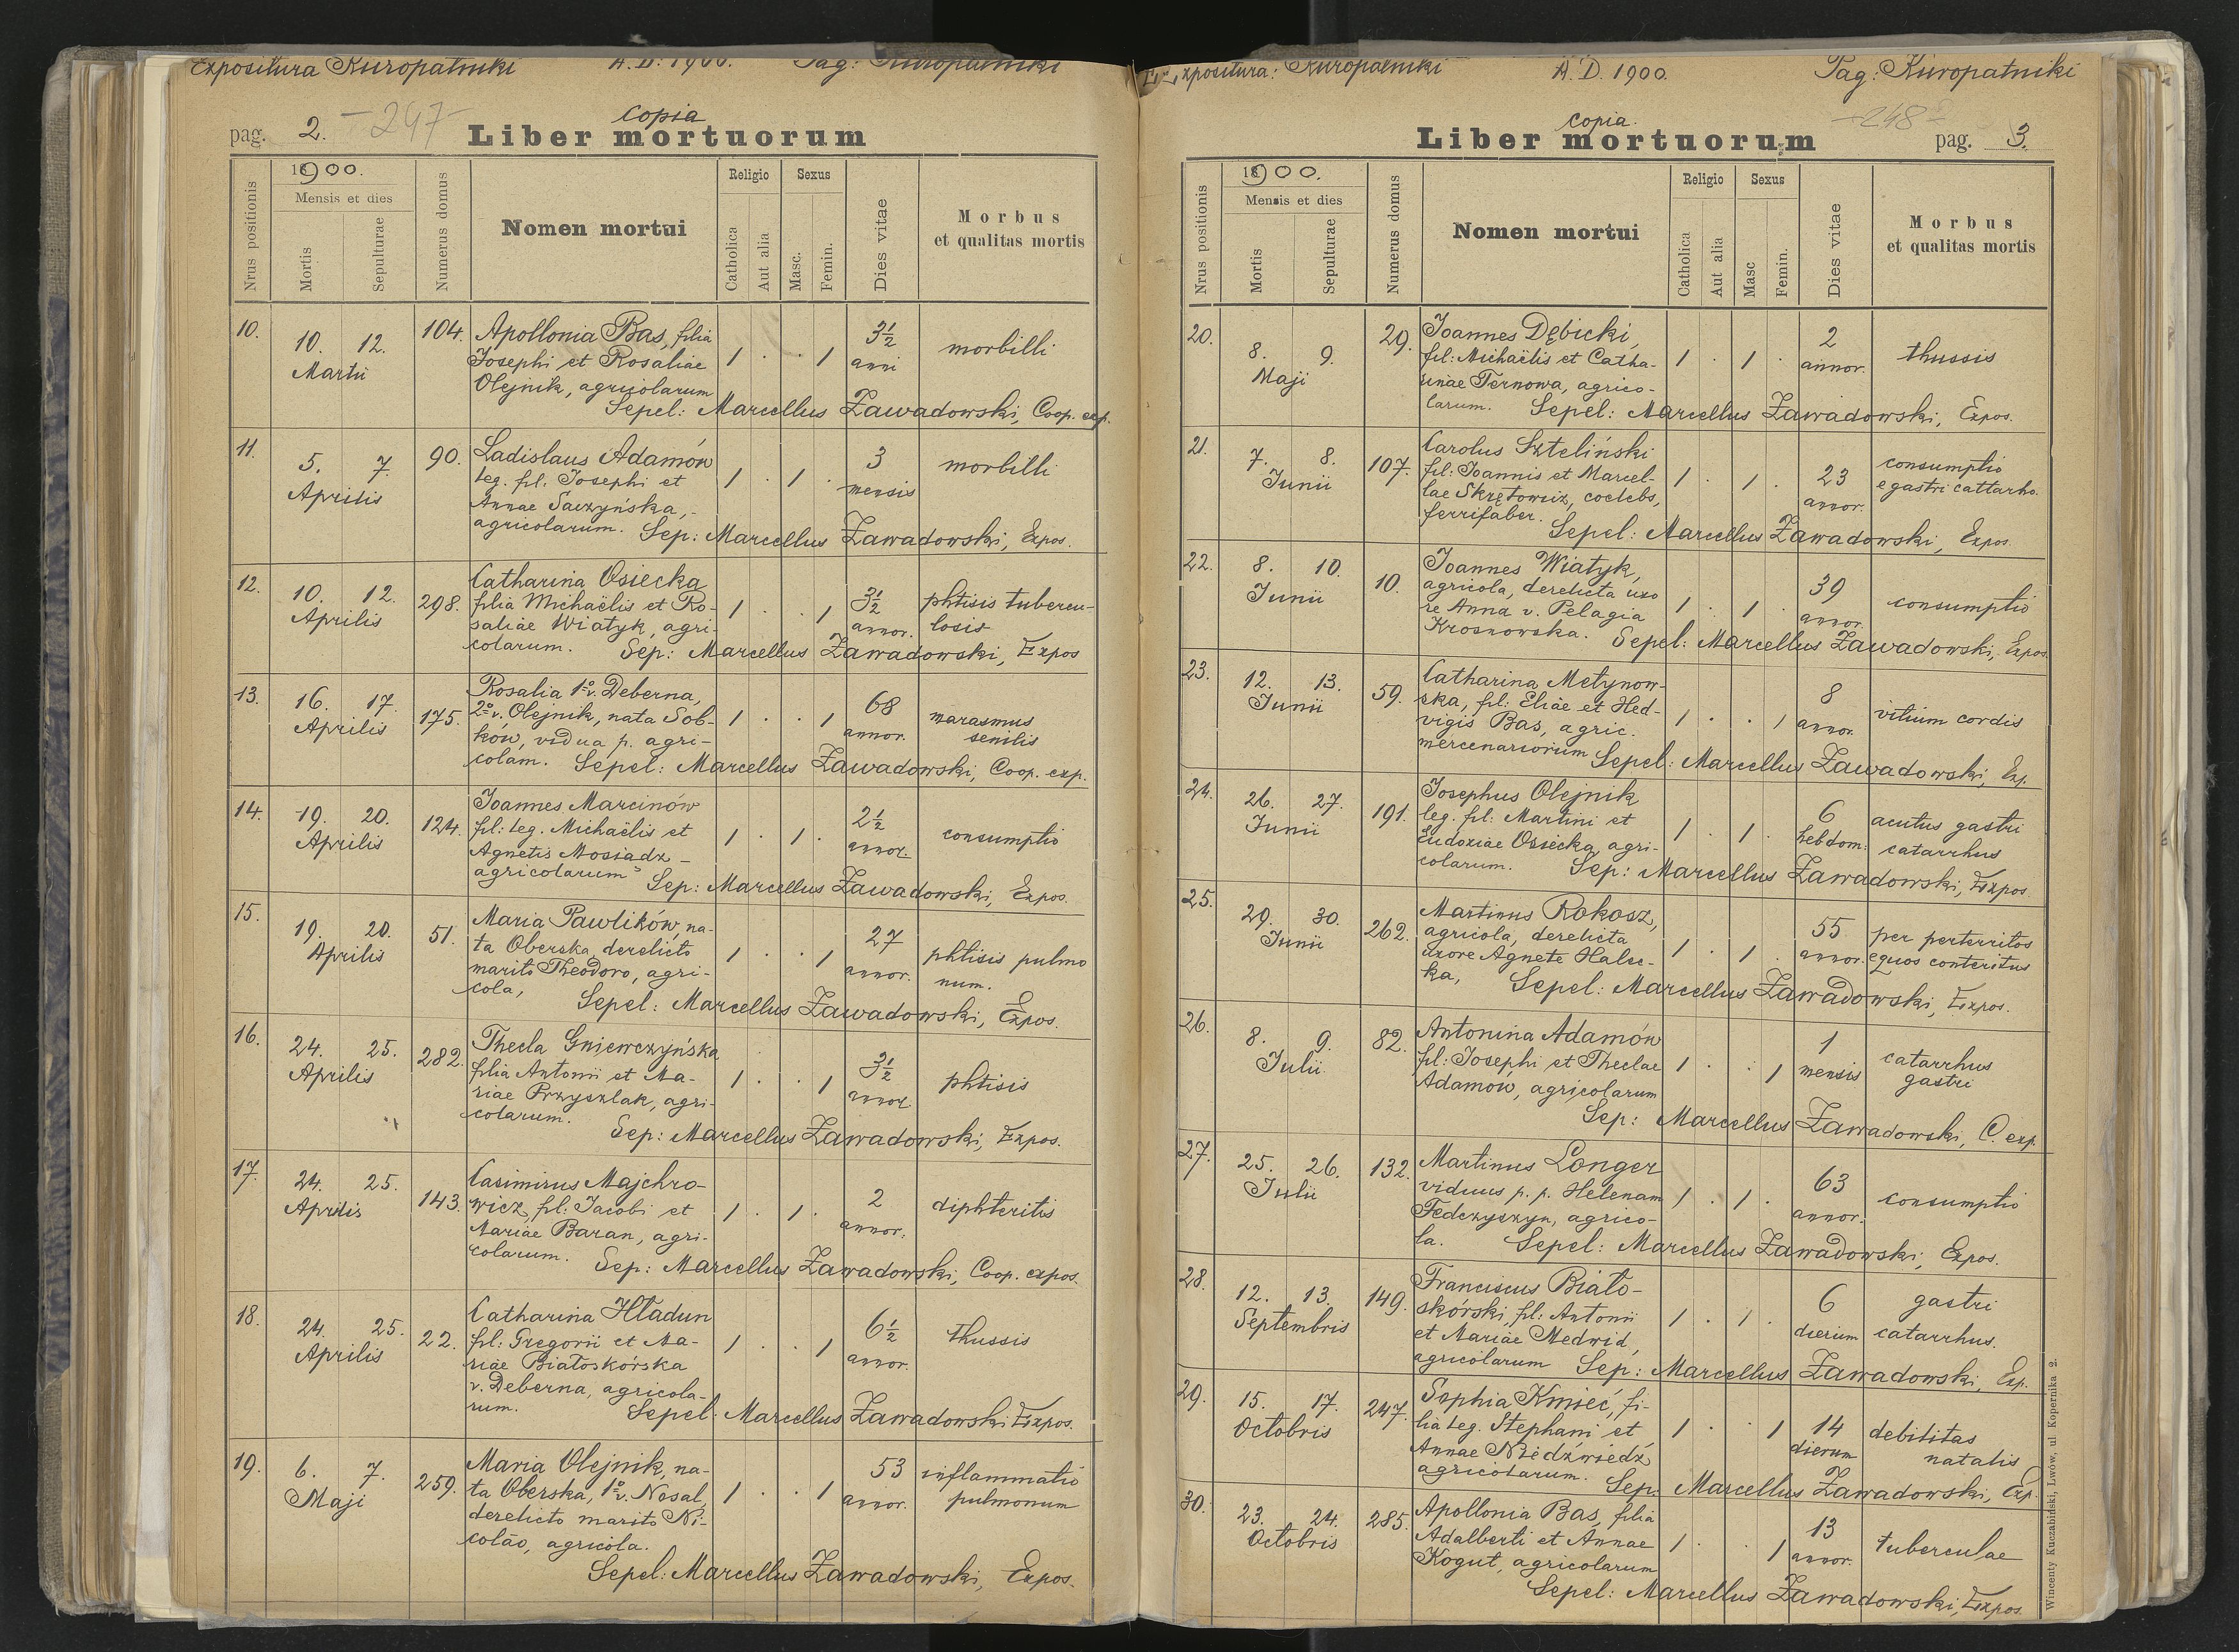 Expositura Kuropatniki A.D. 1900. Pag: Kuropatniki
copia
pag. 2. 247
Liber mortuorum
1900.
Religio Sexus
Mensis et dies
Nrus positionis
Mortis
Sepulturae
Numerus domus
Nomen mortui
Catholica
Aut alia
Masc.
Femin.
Dies vitae
Morbus
et qualitas mortis
10. 10. 12. 104. Apollonia Bas, filia 3½
Martii Josephi et Rosaliae 1 . . 1 anni morbilli
Olejnik, agricolarum
Sepel: Marcellus Zawadowski, Coop. exp.
11. 5. 7. 90. Ladislaus Adamów 3 morbilli
Aprilis leg. fil. Josephi et 1 . 1 . mensis
Annae Saczyńska,
agricolarum. Sep: Marcellus Zawadowski, Expos.
12. 10. 12. 298. Catharina Osiecka 3½ phtisis tubercu-
Aprilis filia Michaëlis et Ro- 1 . . 1 annor. losis
saliae Wiatyk, agri-
colarum. Sep: Marcellus Zawadowski, Expos
13. 16. 17. 175. Rosalia 1º v. Deberna, 68 marasmus
Aprilis 2º v. Olejnik, nata Sob- 1 . . 1 annor. senilis
kow, vidua p. agri-
colam. Sepel: Marcellus Zawadowski, Coop. exp.
14. 19. 20. 124. Joannes Marcinów 2½
Aprilis fil: leg. Michaëlis et 1 . 1 . annor. consumptio
Agnetis Mosiadz -
agricolarum Sep: Marcellus Zawadowski, Expos.
15. 19. 20. 51. Maria Pawlików, na- 27
Aprilis ta Oberska, derelicto 1 . . 1 annor. phtisis pulmo
marito Theodoro, agri- num.
cola, Sepel: Marcellus Zawadowski, Expos.
16. 24. 25. 282. Thecla Gniewczyńska 3½
Aprilis filia Antonii et Ma- 1 . . 1 annor. phtisis
riae Przyszlak, agri-
colarum. Sep: Marcellus Zawadowski, Expos.
17. 24. 25. 143. Casimirus Majchro- 2
Aprilis wicz, fil: Jacobi et 1 . 1 . annor. diphteritis
Mariae Baran, agri-
colarum. Sep: Marcellus Zawadowski, Coop. expos.
18. 24. 25. 22. Catharina Hładun 6½
Aprilis fil: Gregorii et Ma- 1 . . 1 annor. thussis
riae Białoskórska
v. Deberna, agricola-
rum. Sepel. Marcellus Zawadowski Expos.
19. 6. 7. 259. Maria Olejnik, na- 53 inflammatio
Maji ta Oberska, 1º v. Nosal, 1 . . 1 annor. pulmonum
derelicto marito Ni-
coláo, agricola.
Sepel: Marcellus Zawadowski, Expos.
Expositura: Kuropatniki A.D. 1900. Pag: Kuropatniki
copia.
Liber mortuorum
248
pag. 3.
1900.
Religio Sexus
Mensis et dies
Nrus positionis
Mortis
Sepulturae
Numerus domus
Nomen mortui
Catholica
Aut alia
Masc
Femin.
Dies vitae
Morbus
et qualitas mortis
20. 8. 9. 29. Joannes Dębicki, 2
Maji fil: Michaëlis et Catha- 1 . 1 . annor. thussis
rinae Ternowa, agrico-
larum. Sepel: Marcellus Zawadowski, Expos.
21. 7. 8. 107. Carolus Szteliński 23 consumptio
Junii fil: Joannis et Marcel- 1 . 1 . annor. e gastri cattarho.
lae Skrętowicz, coelebs,
ferrifaber. Sepel: Marcellus Zawadowski, Expos.
22. 8. 10. 10. Joannes Wiatyk, 39
Junii agricola, derelicta uxo 1 . 1 . annor. consumptio
re Anna v. Pelagia
Krosnowska. Sepel: Marcellus Zawadowski, Expos.
23. 12. 13. 59. Catharina Metynow- 8
Junii ska, fil: Eliae et Hed- 1 . . 1 annor. vitium cordis
vigis Bas, agric.
mercenariorum Sepel: Marcellus Zawadowski, Exp.
24. 26. 27. 191. Josephus Olejnik 6 acutus gastri
Junii leg. fil: Martini et 1 . 1 . hebdom: catarrhus
Eudoxiae Osiecka, agri-
colarum. Sep: Marcellus Zawadowski, Expos.
25. 29. 30. 262. Martinus Rokosz, 55 per perterritos
Junii agricola, derelicta 1 . 1 . annor. equos conteritus
uxore Agnete Halic-
ka, Sepel: Marcellus Zawadowski, Expos.
26. 8. 9. 82. Antonina Adamów 1 catarrhus
Julii fil: Josephi et Theclae 1 . . 1 mensis gastri
Adamów, agricolarum
Sep: Marcellus Zawadowski, C. exp.
27. 25. 26. 132. Martinus Longer 63
Julii viduus p. p. Helenam 1 . 1 . annor. consumptio
Fedczyszyn, agrico-
la. Sepel: Marcellus Zawadowski, Expos.
28. 12. 13. 149. Franciscus Biało- 6 gastri
Septembris skórski, fil: Antonii 1 . 1 . dierum catarrhus.
et Mariae Medwid,
agricolarum Sep: Marcellus Zawadowski, Exp.
29. 15. 17. 247. Sophia Kmieć, fi- 14 debilitas
Octobris lia leg. Stephani et 1 . . 1 dierum natalis
Annae Niedźwiedź
agricolarum. Sep: Marcellus Zawadowski, Exp.
30. 23. 24. 285. Apollonia Bas, filia 13
Octobris Adalberti et Annae 1 . . 1 annor. tuberculae
Kogut, agricolarum
Sepel: Marcellus Zawadowski, Expos.
Wincenty Kuczabiński, Lwów, ul Kopernika 2.